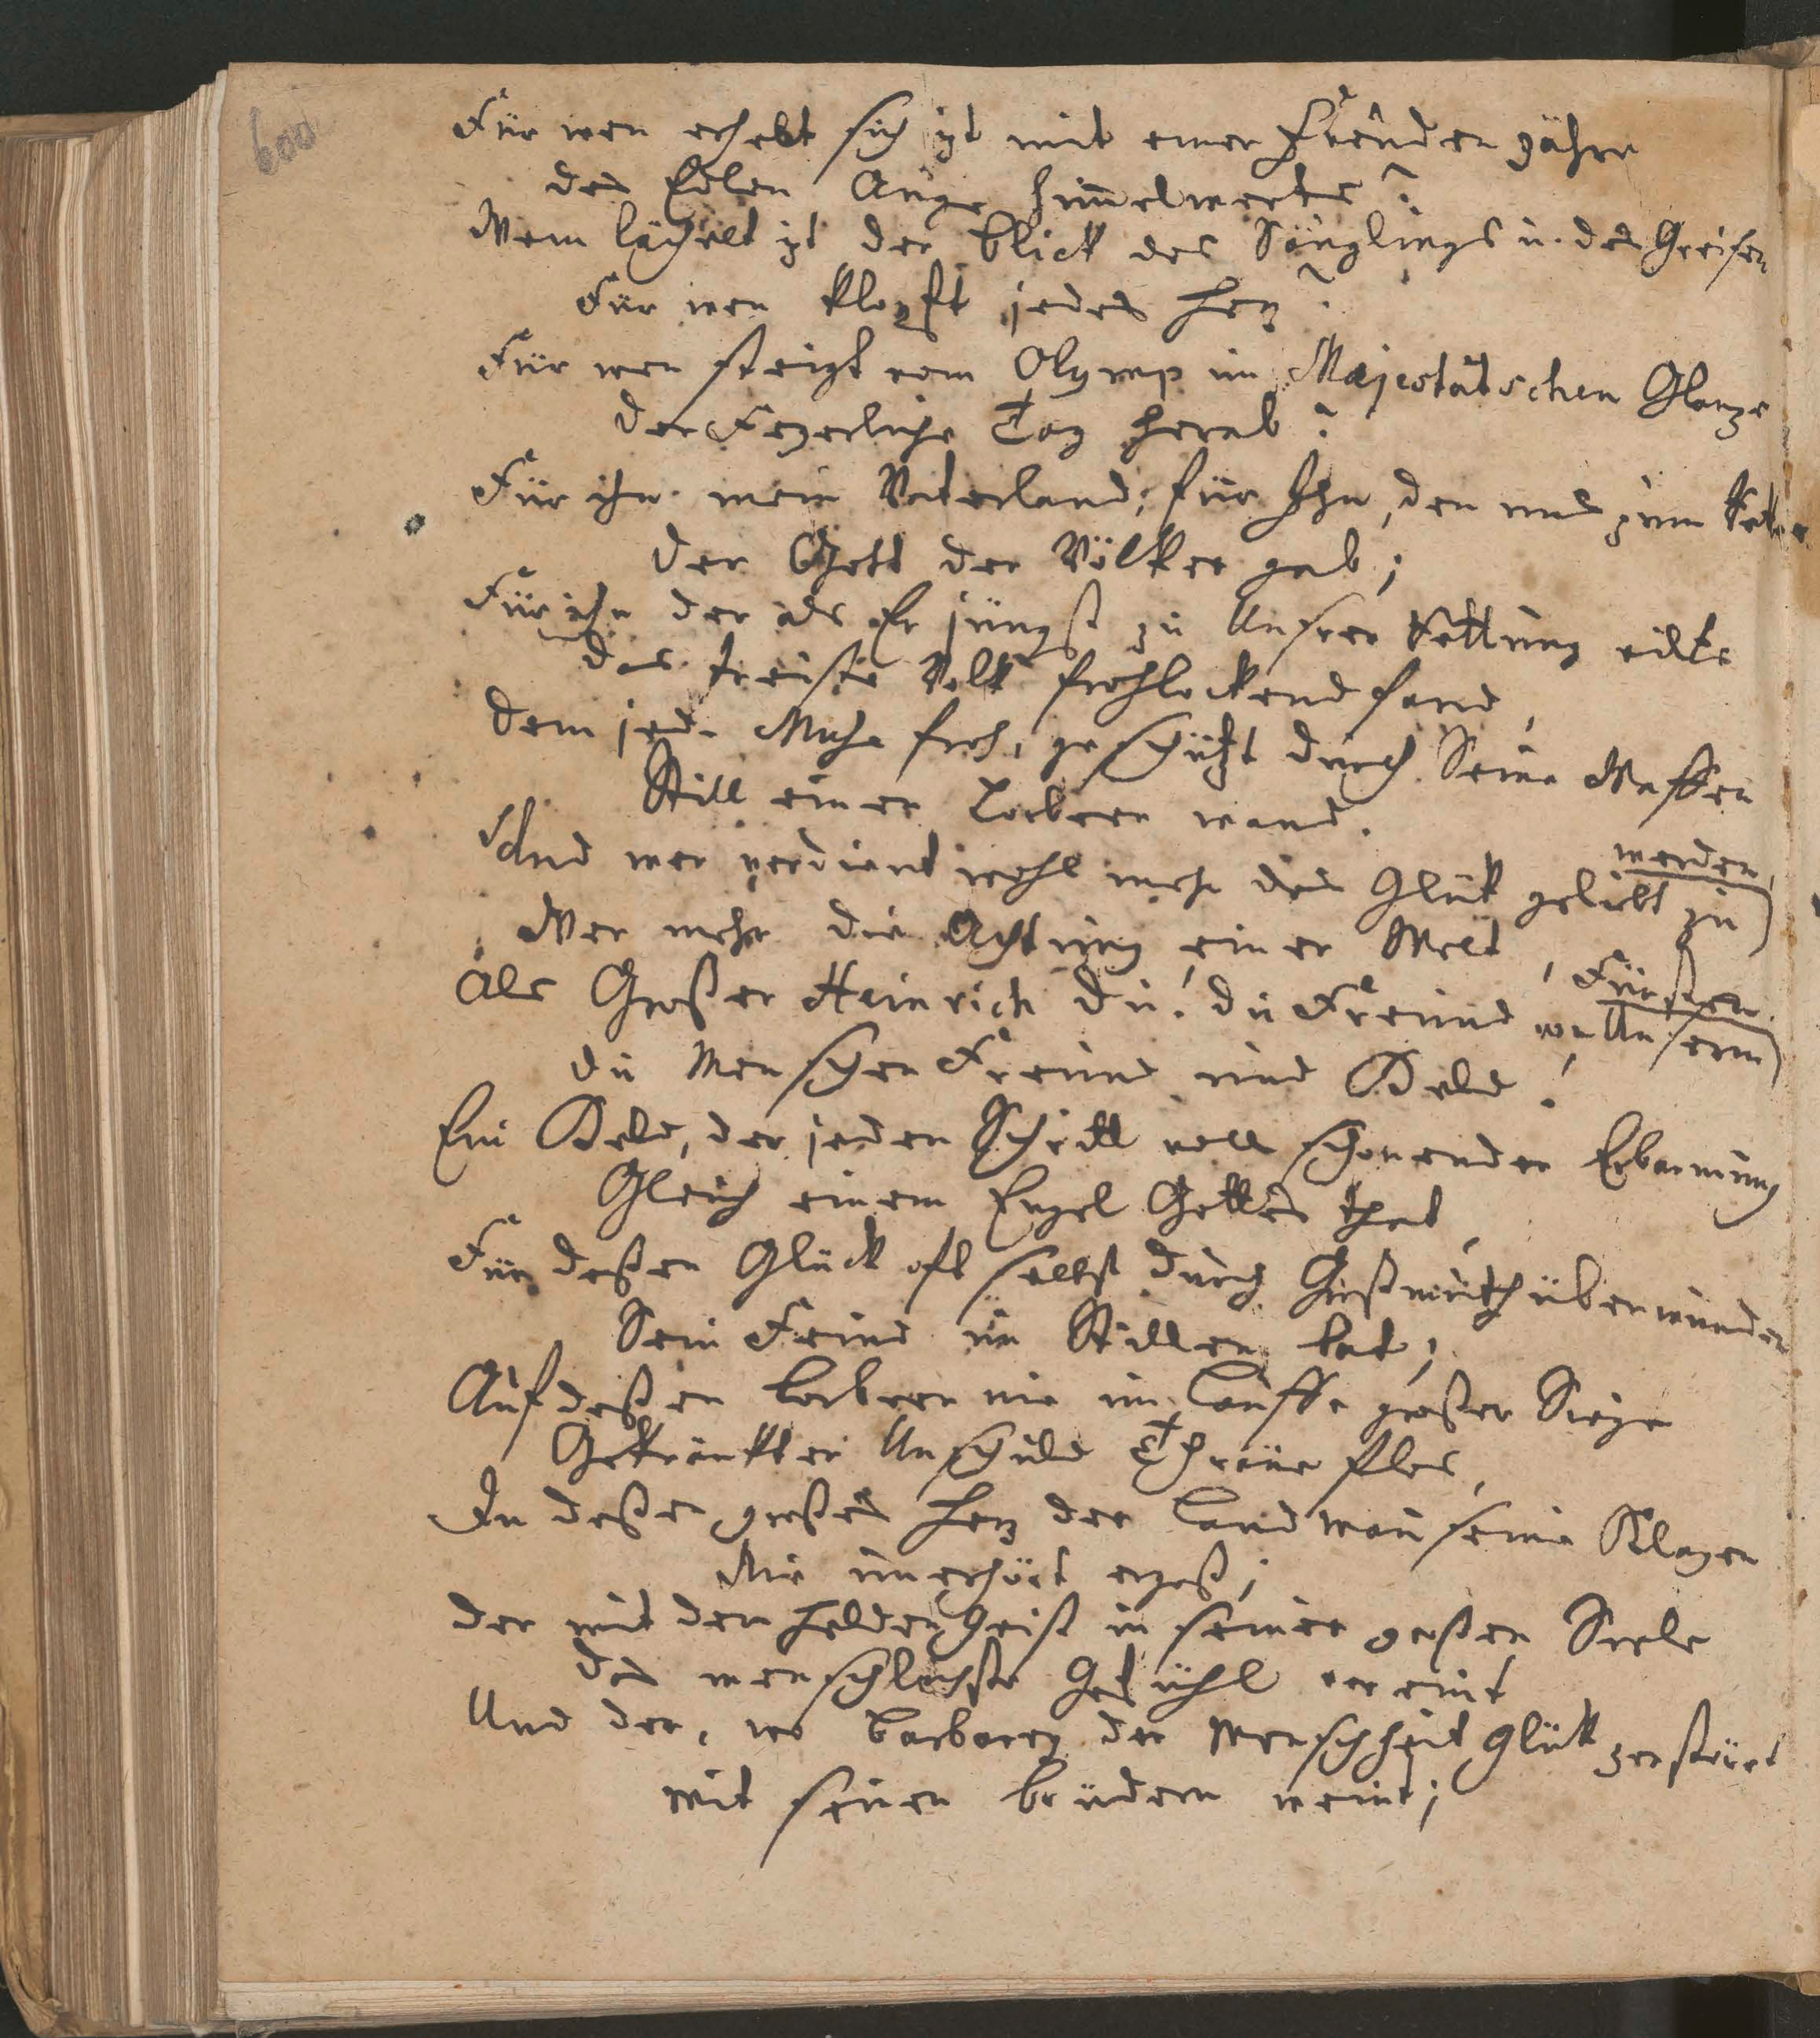 600
Für wen erhebt sich izt mit einer Freuden zähre
das Edlen Auge himelwerts?
Wem lächelt izt der Blick des Säuglings u. des Greisen
Für wen klopft jedes Herz?
Für wen steigt vom Olymp im Majestätschen Glanze
der Feyerliche Tag herab?
Für ihn mein Vaterland; für Ihn, den uns zum Retter
der Gott der Völker gab;
Für ihn der als Er jüngst zu Unsrer Rettung eilte
das treuste Volk frohlockend fand,
dem jede Muse froh, geschüzt durch Seine Waffen
Still einen Lorbeer wand.
Und wer verdient wohl mehr das Glük geliebt zu
werden,
Wer mehr die Achtung einer Welt,
Als Großer Heinrich du! du Freund von Unserm
Fürsten.
du Menschen Freund und Held!
Ein Held, der jeden Schritt voll schonender Erbarmung
Gleich einem Engel Gottes that,
Für deßen Glück oft selbst durch Großmuth überwunden
Sein Feind im Stillen bat;
Auf deßen Lorbeer nie im Lauffe großer Siege
Gekränkter Unschuld Thräne flos,
In deßen großes Herz der Landman seine Klagen
Nie unerhört ergoß;
der mit dem Helden Geist in seiner großen Seele
das menschlichste Gefühl vereint
Und der, wo Barbarey der Menschheit Glük zerstört
mit seinen Brüdern weint;